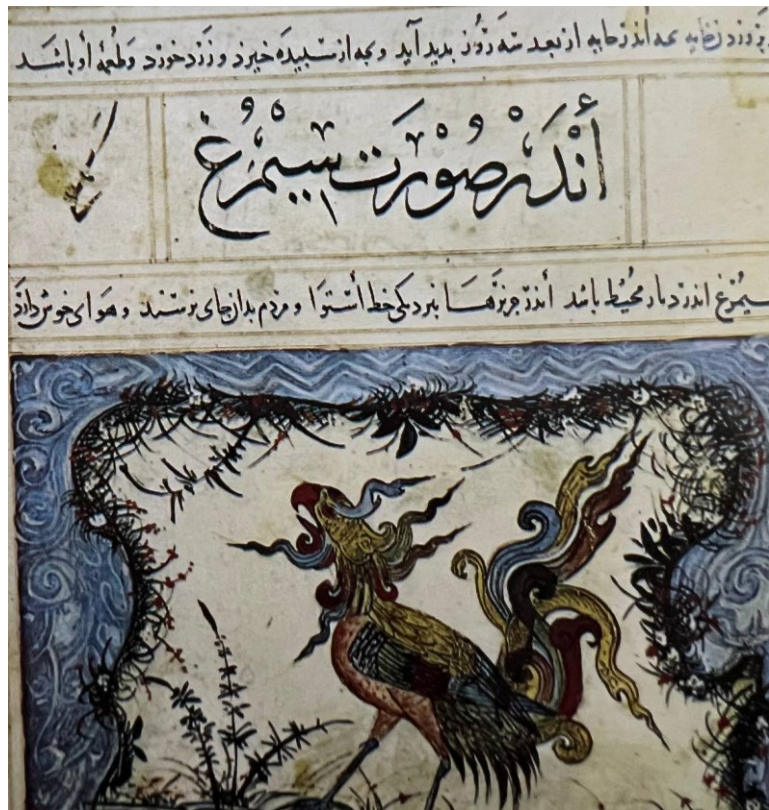 بچه اندر خایه از بعد سه روز بدید آید و بچه از سبیده خیزد و زرد خورد و طعمه او باشد
أَنْدَر صُوْرَت سِيْمُرغ
سیمرغ اندر دیار محیط باشد اندر جزیرها بنزدیکی خط استوا و مردم بدان جای نرسند و هوای خوش دارد